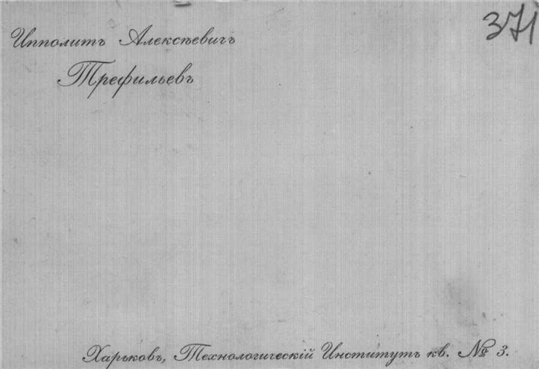 Ипполитъ Алексѣевичъ
371
Трефильевъ
Харьковъ, Технологическій Институтъ кв. № 3.